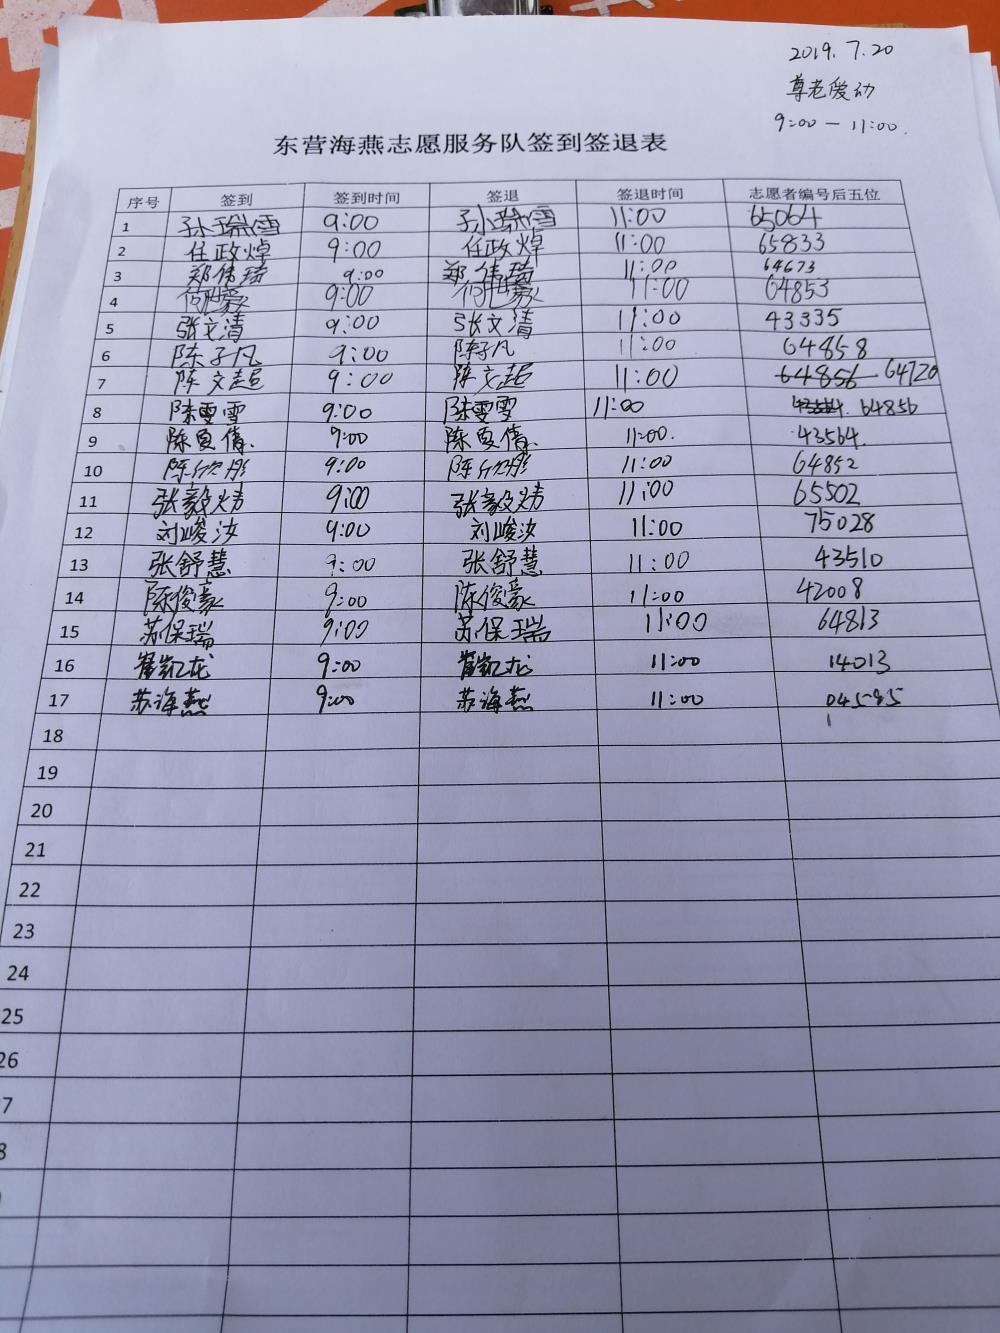 2019.7.20
尊老爱动
9:00 — 11:00.
东营海燕志愿服务队签到签退表
序号 签到 签到时间 签退 签退时间 志愿者编号后五位
1 孙瑜雪 9:00 孙瑜雪 11:00 65064
2 任政焯 9:00 任政焯 11:00 65833
3 郑伟琦 9:00 郑伟琦 11:00 64673
4 9:00 11:00 64853
5 张文清 9:00 张文清 11:00 43335
6 陈子凡 9:00 陈子凡 11:00 64858
7 陈文超 9:00 陈文超 11:00 64856 64720
8 陈雯雪 9:00 陈雯雪 11:00 64856
9 陈夏倩 9:00 陈夏倩 11:00. 43564.
10 陈欣彤 9:00 陈欣彤 11:00 64852
11 张毅炜 9:00 张毅炜 11:00 65502
12 刘峻汝 9:00 刘峻汝 11:00 75028
13 张舒慧 9:00 张舒慧 11:00 43510
14 陈俊豪 9:00 陈俊豪 11:00 42008
15 苏保瑞 9:00 苏保瑞 11:00 64813
16 崔凯龙 9:00 崔凯龙 11:00 14013
17 苏海燕 9:00 苏海燕 11:00 04585
18
19
20
21
22
23
24
25
26
7
8